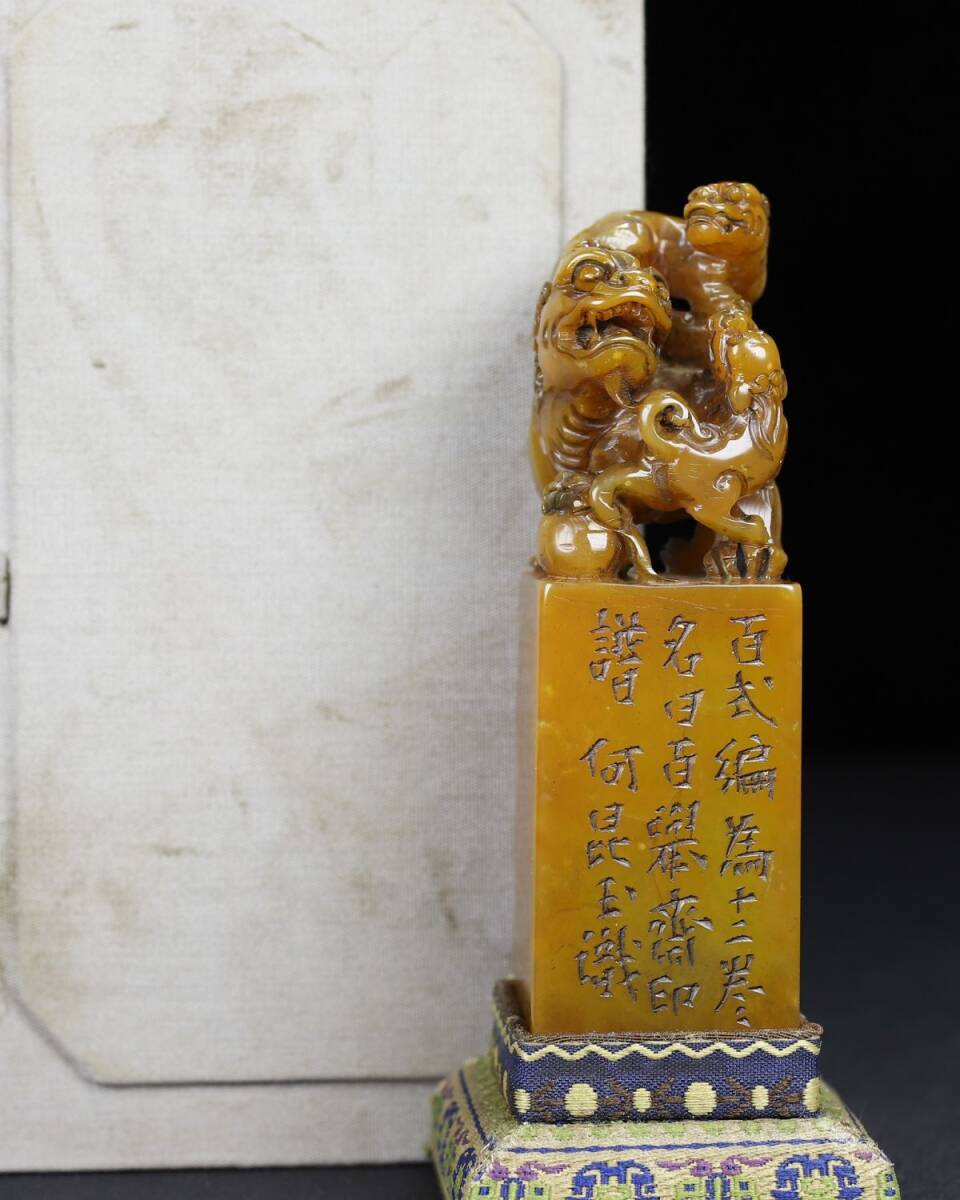 百式編為十二卷
名曰百舉齋印
譜 何昆玉識